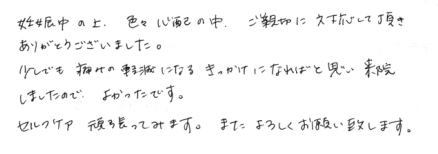 妊娠中の上、色々心配の中、ご親切に対応して頂き
ありがとうございました。
少しでも痛みの軽減になるきっかけになればと思い来院
しましたので、よかったです。
セルフケア頑張ってみます。またよろしくお願い致します。